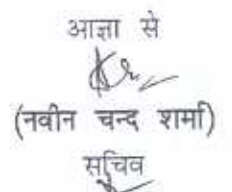 आज्ञा से
(नवीन चन्द शर्मा)
सचिव